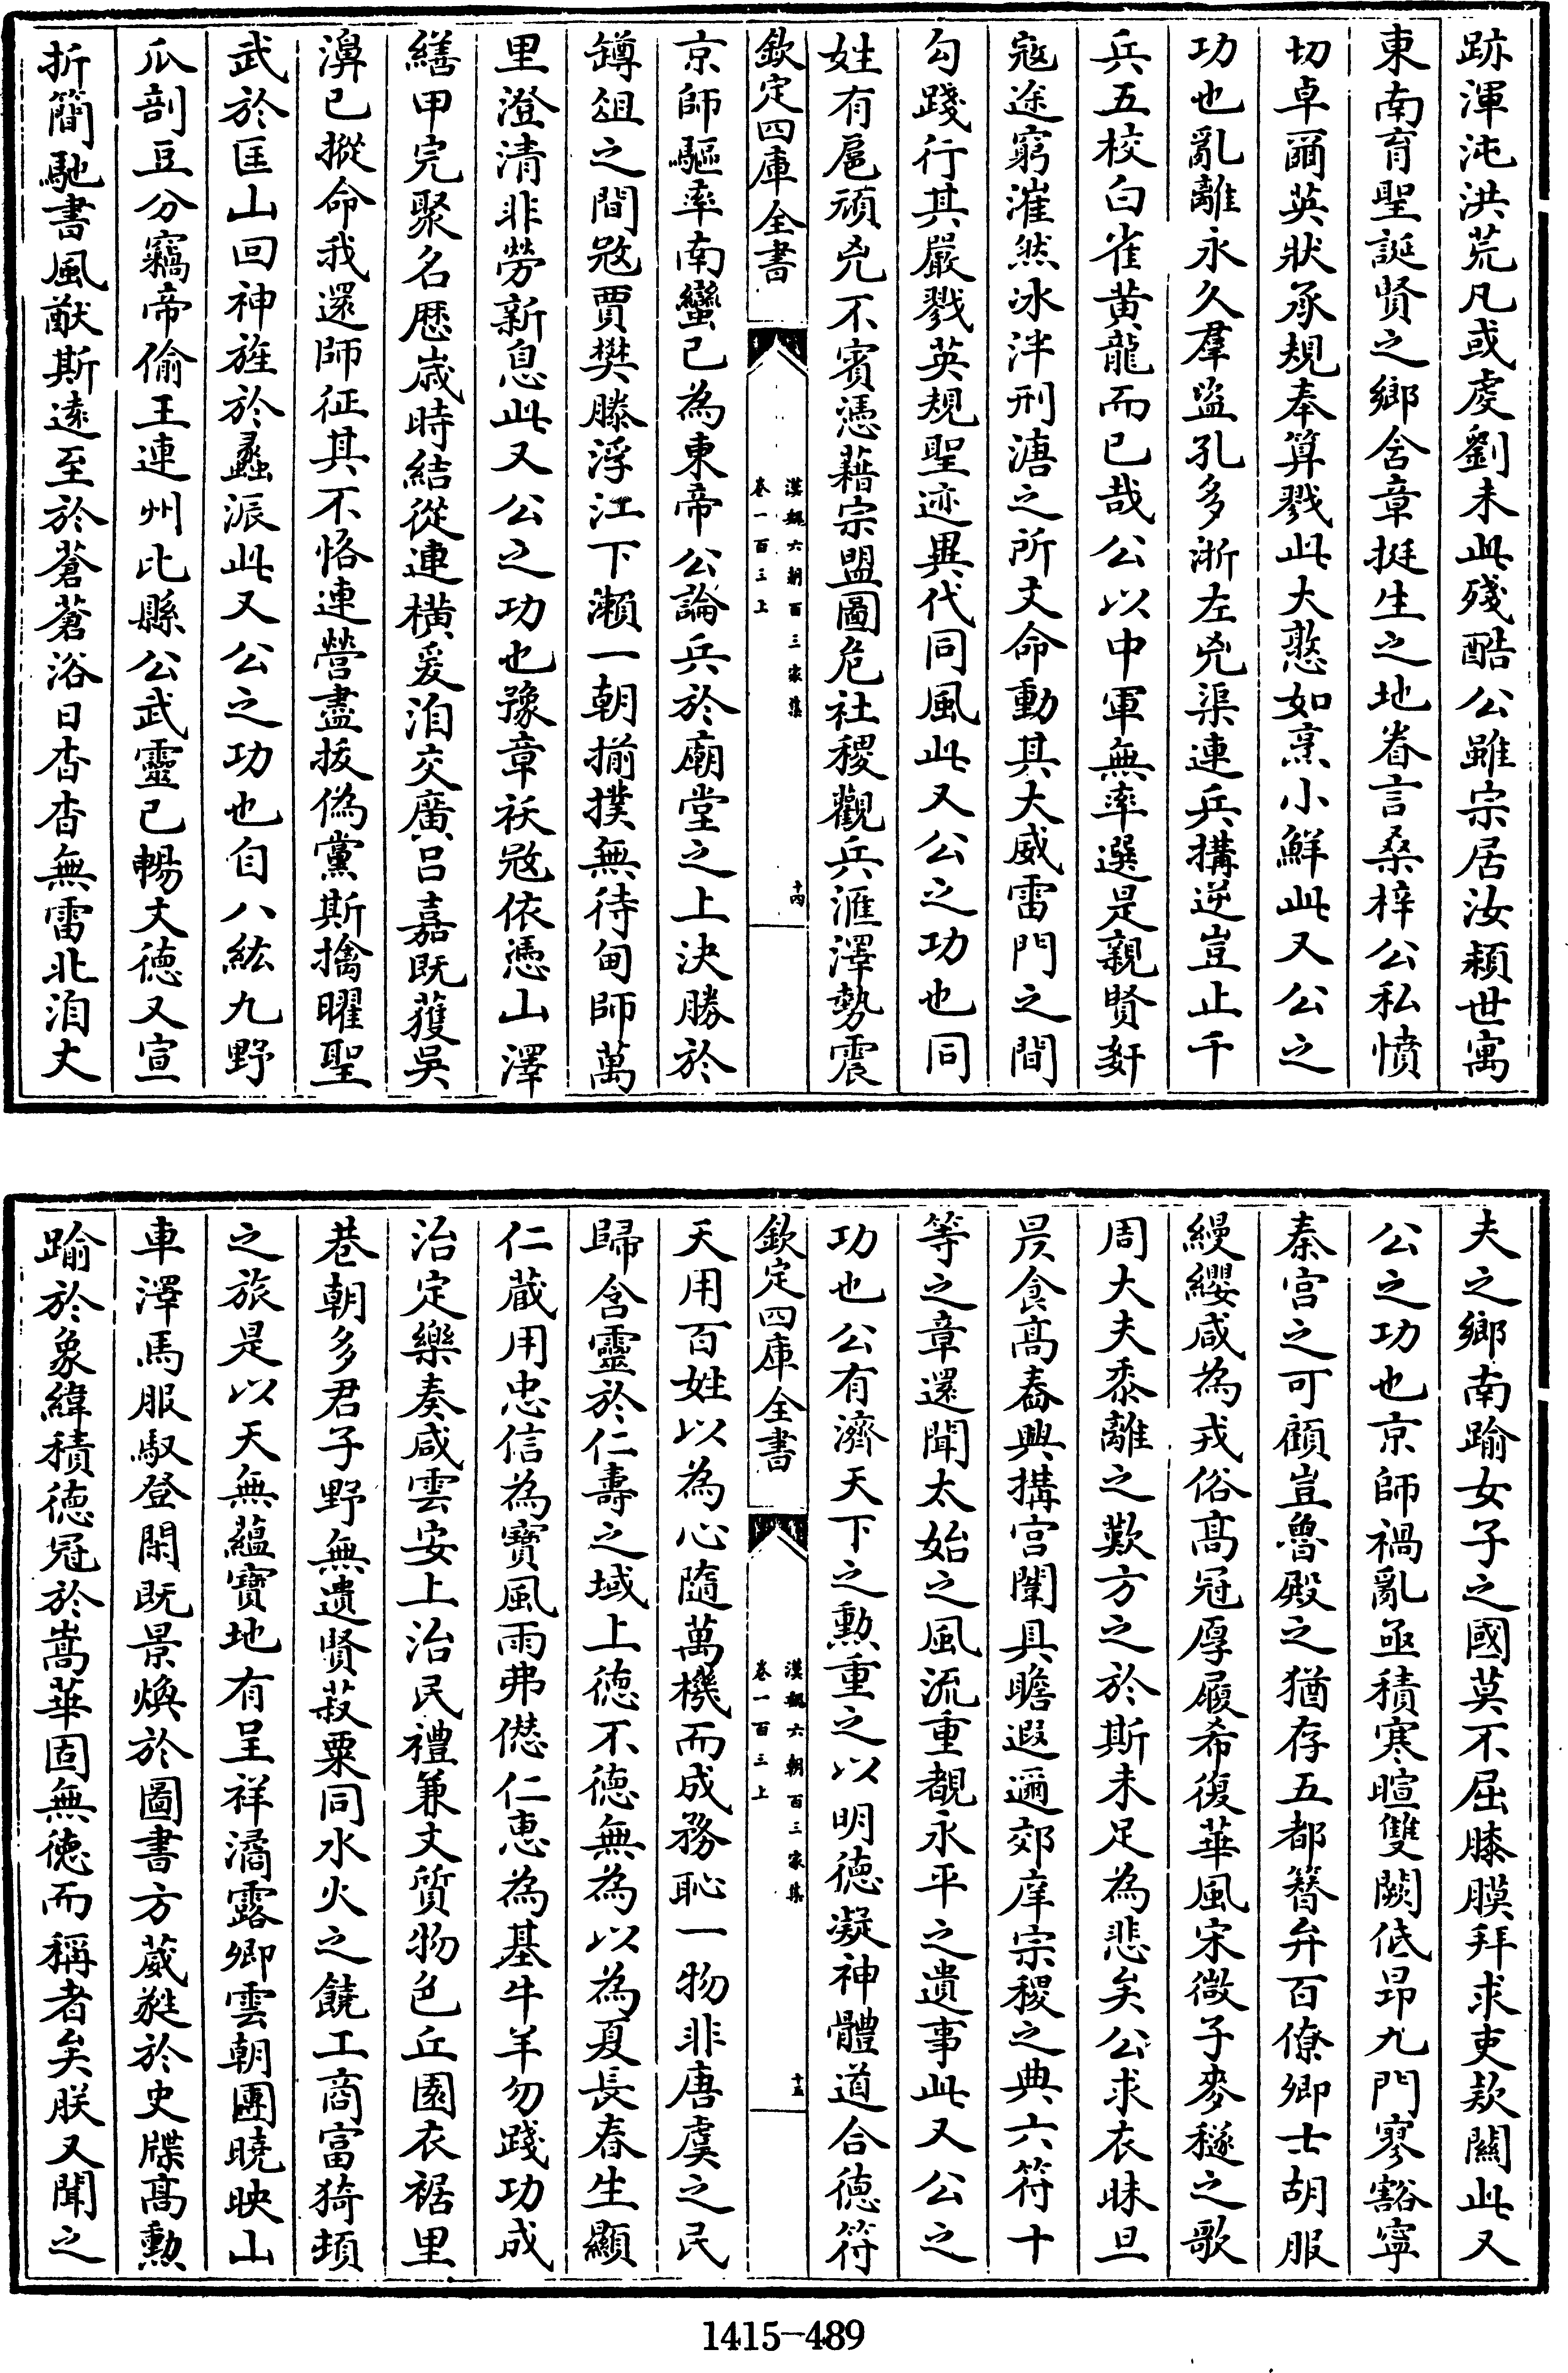 跡渾沌洪荒凡或虔劉未此殘酷公雖宗居汝潁世寓
東南育聖誕賢之鄉含章挺生之地眷言桑梓公私憤
切卓爾英狀承規奉算戮此大憝如烹小鮮此又公之
功也亂離永久羣盜孔多浙左兇渠連兵搆逆豈止千
兵五校白雀黄龍而已哉公以中軍無率選是親賢奸
寇途窮漼然冰泮刑溏之所文命動其大威雷門之間
勾踐行其嚴戮英規聖迹異代同風此又公之功也同
姓有扈頑兇不賓憑藉宗盟圖危社稷觀兵滙澤勢震
欽定四庫全書
漢魏六朝百三家集
卷一百三上
十四
京師驅率南蠻已為東帝公論兵於廟堂之上決勝於
罇俎之間㓂賈樊滕浮江下瀨一朝揃撲無待甸師萬
里澄清非勞新息此又公之功也豫章祅㓂依憑山澤
繕甲完聚名歴歳時結從連横爰洎交廣吕嘉既獲吳
濞已摐命我還師征其不恪連營盡拔偽黨斯擒曜聖
武於匡山回神旌於蠡派此又公之功也自八紘九野
瓜剖豆分竊帝偷王連州比縣公武靈已暢文徳又宣
折簡馳書風猷斯逺至於蒼蒼浴日杳杳無雷北洎丈
夫之鄉南踰女子之國莫不屈膝膜拜求吏欵關此又
公之功也京師禍亂亟積寒暄雙闕低昂九門寥豁寧
秦宫之可顧豈魯殿之猶存五都簪弁百僚卿士胡服
縵纓咸為戎俗髙冠厚履希復華風宋微子麥穟之歌
周大夫黍離之歎方之於斯未足為悲矣公求衣昧旦
昃食髙舂興搆宫闈具瞻遐邇郊庠宗稷之典六符十
等之章還聞太始之風流重覩永平之遺事此又公之
功也公有濟天下之勲重之以明徳凝神體道合徳符
欽定四庫全書
漢魏六朝百三家集
卷一百三上
十五
天用百姓以為心隨萬機而成務恥一物非唐虞之民
歸含靈於仁壽之域上徳不徳無為以為夏長春生顯
仁蔵用忠信為寳風雨弗僁仁惠為基牛羊勿踐功成
治定樂奏咸雲安上治民禮兼文質物色丘園衣裾里
巷朝多君子野無遺賢菽粟同水火之饒工商富猗頓
之旅是以天無蘊寳地有呈祥潏露卿雲朝團曉映山
車澤馬服馭登閑既景焕於圖書方葳蕤於史牒髙勲
踰於象緯積徳冠於嵩華固無徳而稱者矣朕又聞之
1415-489